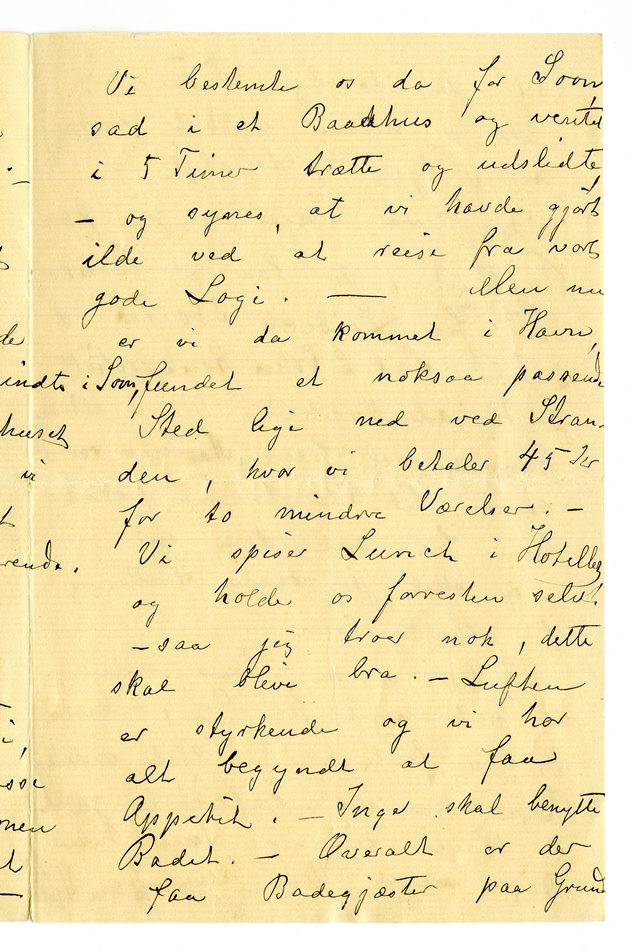 Vi bestemte os da for Soon,
sad i et Baadhus og ventet
i 5 Timer trætte og udslidte,
– og synes, at vi havde gjört
ilde ved at reise fra vort
gode Logi. — Men nu
er vi da kommet i Havn,
i Soon, fundet et noksaa passende
Sted lige ned ved Stran-
den, hvor vi betaler 45 Kr
for to mindre Værelser. –
Vi spiser Lunch i Hotellet
og holde os forresten selvt
– saa jeg troer nok, dette
skal blive bra. – Luften
er styrkende og vi har
alt begyndt at faa
Appetit. – Inger skal benytte
Badet. – Overalt er der
faa Badegjæster paa Grund